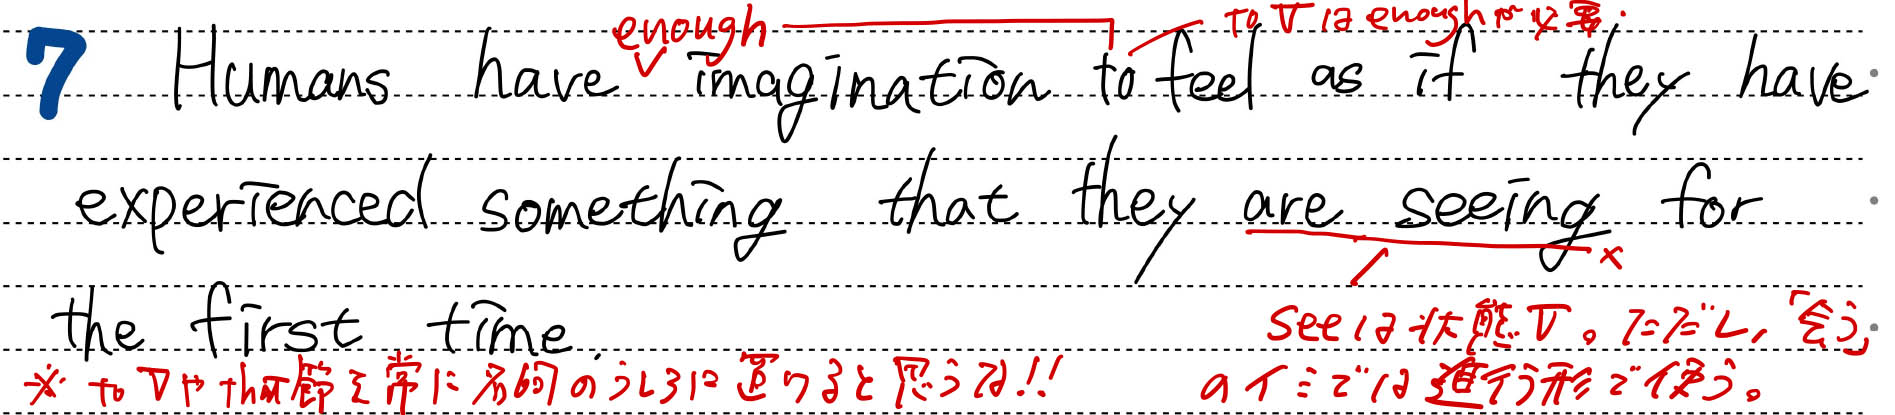 enough to Vはenoughが必要.
7 Humans have imagination to feel as if they have
experienced something that they are seeing for
the first time.
seeは状態V。ただし,「会う」
※ to Vやthat節を常に名詞のうしろに置けると思うな!! のイミでは進行形で使う。